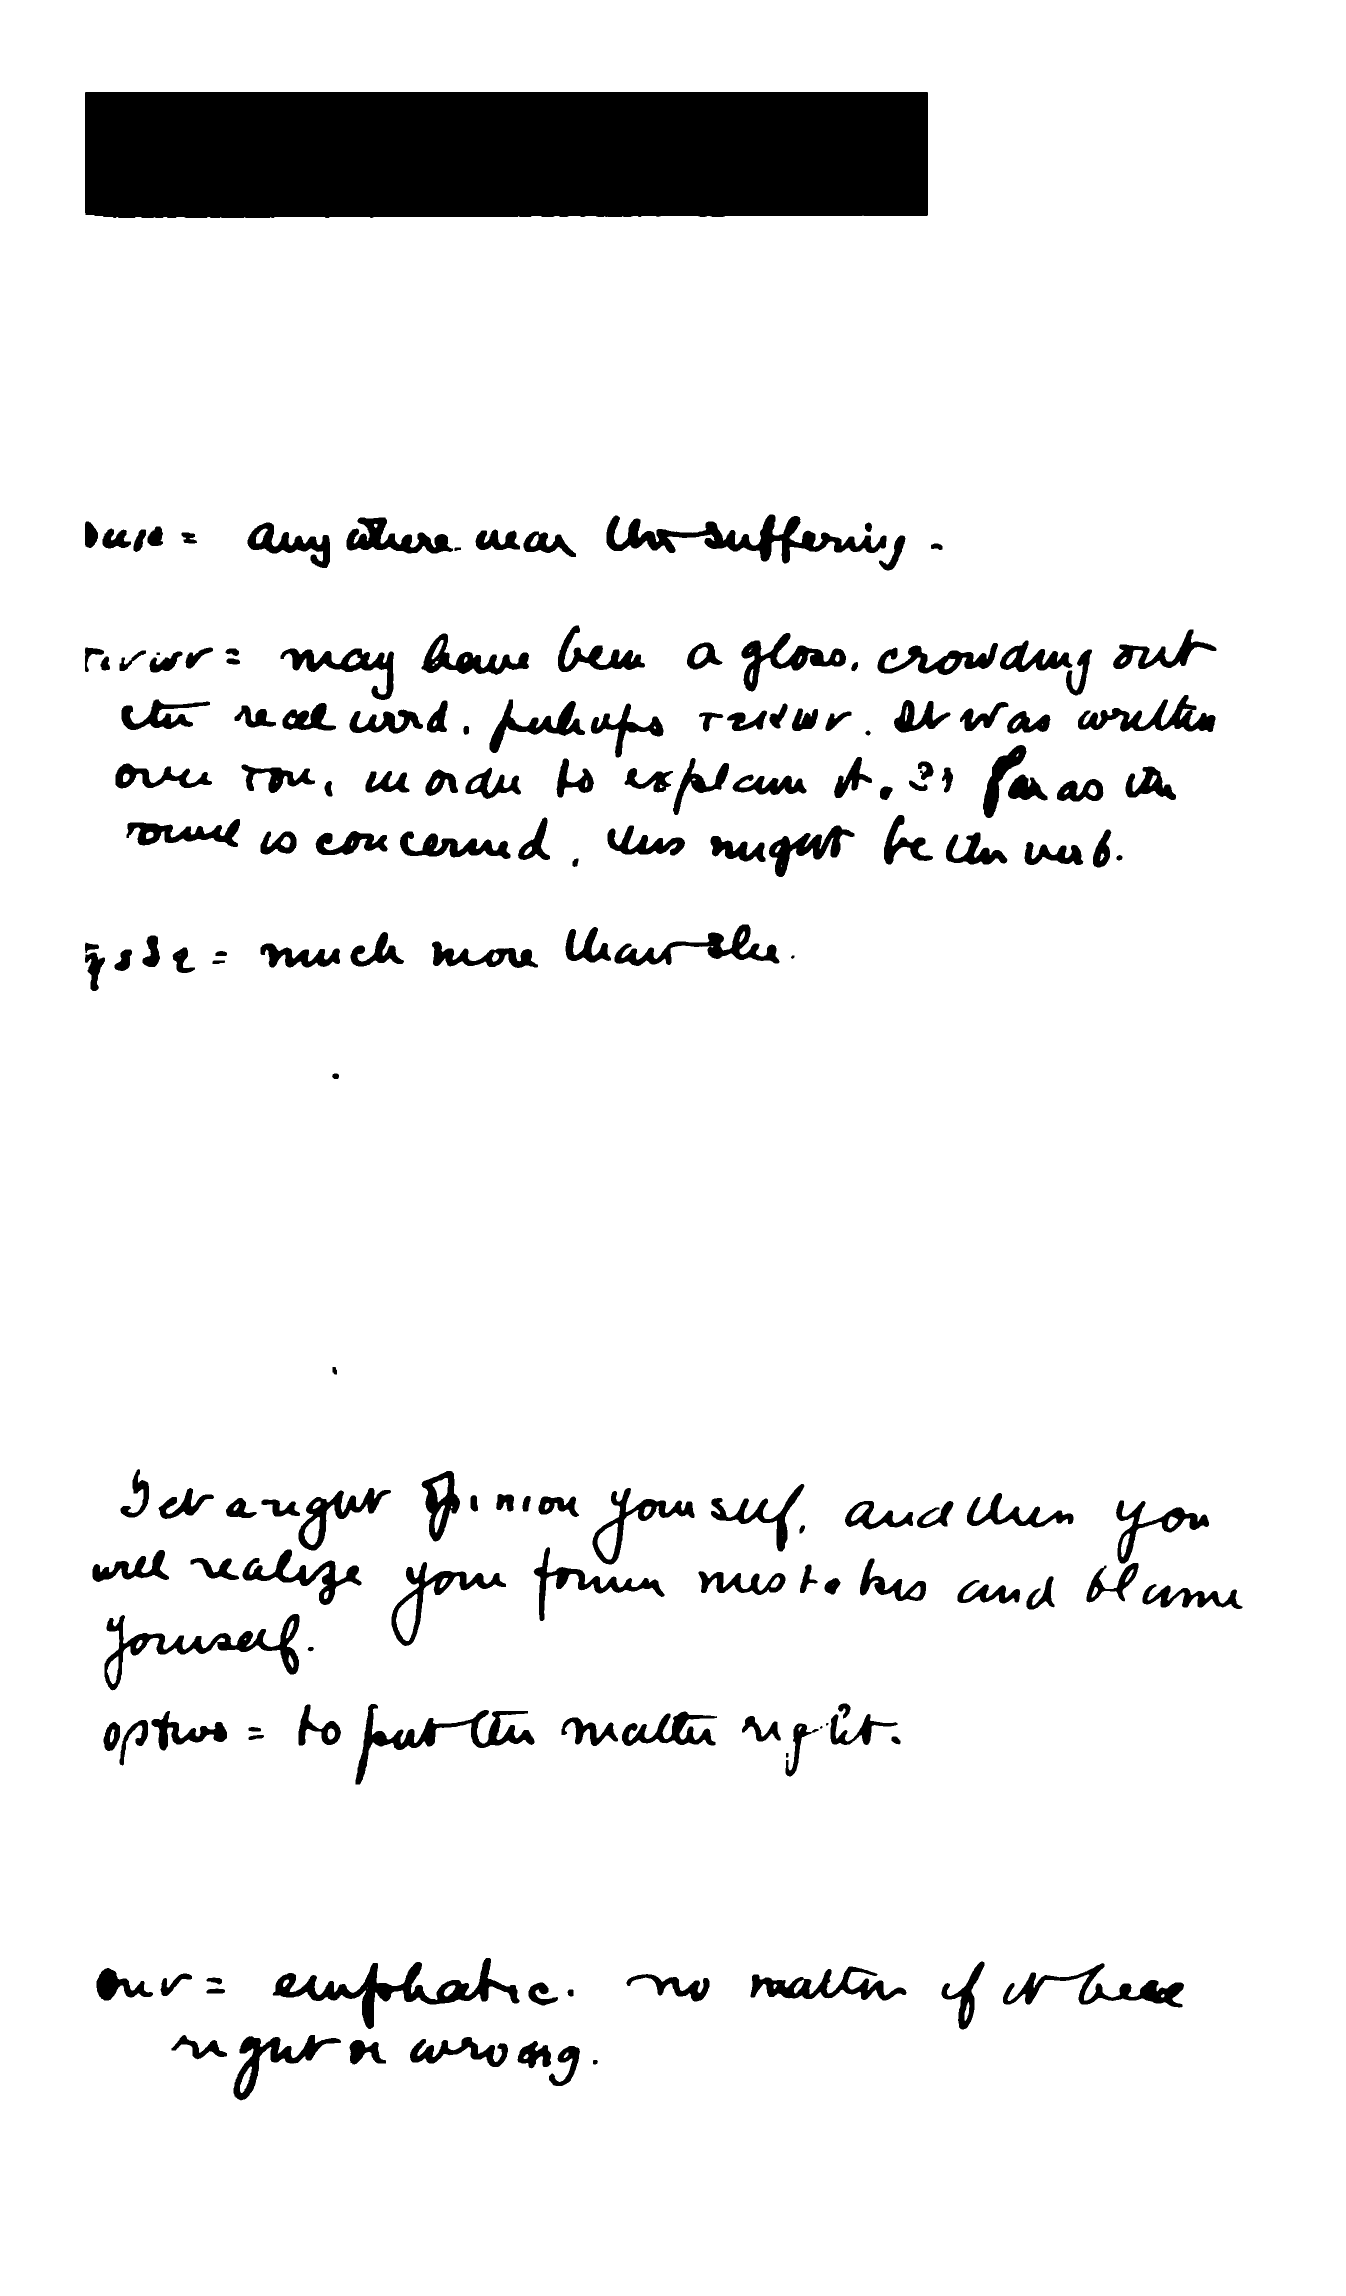 = anywhere near the suffering.
= may have been a gloss, crowding out
the real word, perhaps . It was written
over του, in order to explain it. ?? Far as the
is concerned, this might be the verb.
= much more than she.
Get a right opinion yourself, and then you
will realize your former mistakes and blame
yourself.
= to put the matter right.
= emphatic. no matter if it be
right or wrong.